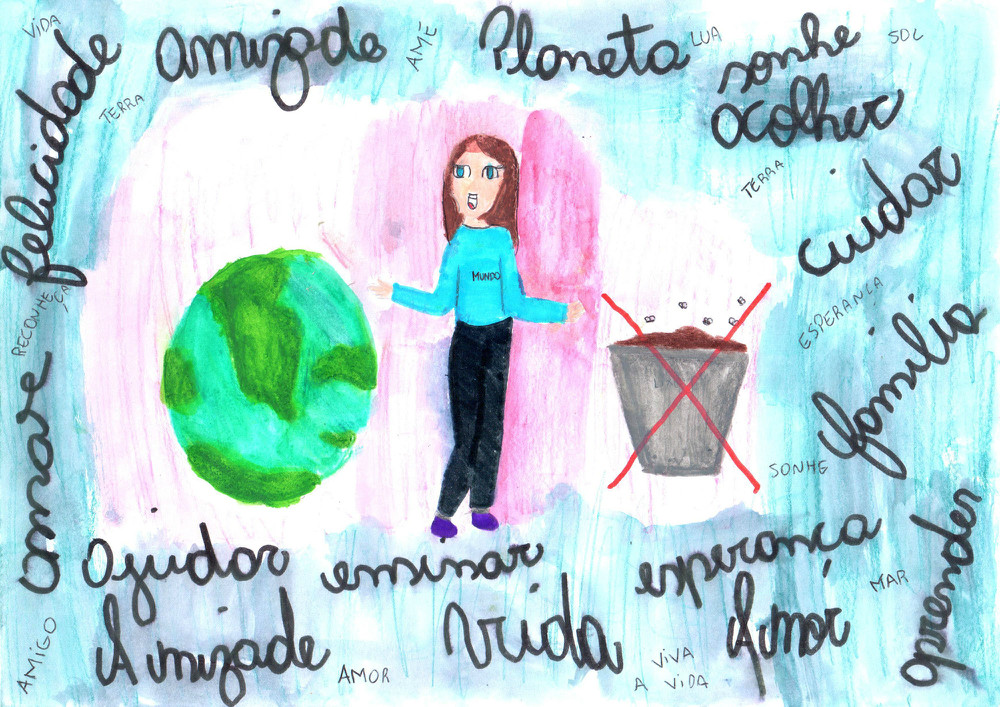 VIDA
amizade
AMÉ
Planeta
LUA
sonhe
SOL
acolher
felicidade
TERRA
TERRA
cuidar
MUNDO
ESPERANÇA
RECONHEÇA
família
amar
SONHE
aprender
ajudar
ensinar
esperança
MAR
AMIGO
Amizade
AMOR
Vida
VIVA
A VIDA
Amor